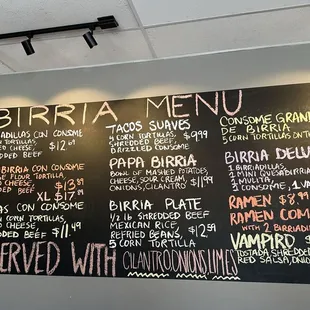 BIRRIA MENU
ADILLAS CON CONSOME
CORN TORTILLAS,
CHEESE, $12.69
DED BEEF
BIRRIA CON CONSOME
FLOUR TORTILLA
CHEESE, $13.89
DED BEEF XL $17.89
AS CON CONSOME
CORN TORTILLAS,
CHEESE,
DED BEEF $11.49
TACOS SUAVES
4 CORN TORTILLAS, $9.99
SHREDDED BEEF,
DRIZZLED CONSOME
PAPA BIRRIA
BOWL OF MASHED POTATOES,
CHEESE, SOUR CREAM,
ONIONS, CILANTRO $11.99
BIRRIA PLATE
1/2 lb SHREDDED BEEF
MEXICAN RICE
REFRIED BEANS, $12.59
5 CORN TORTILLA
CONSOME GRAN
DE BIRRIA
5 CORN TORTILLAS ON
BIRRIA DELU
1 BIRRIADILLAS,
1 MINI QUESABIRRIA
1 MULITA,
3 CONSOME,
RAMEN $8.9
RAMEN COM
WITH 2 BIRRIADI
VAMPIRO
TOSTADA SHREDDED
RED SALSA, ONIO
ERVED WITH CILANTRO, ONIONS, LIMES